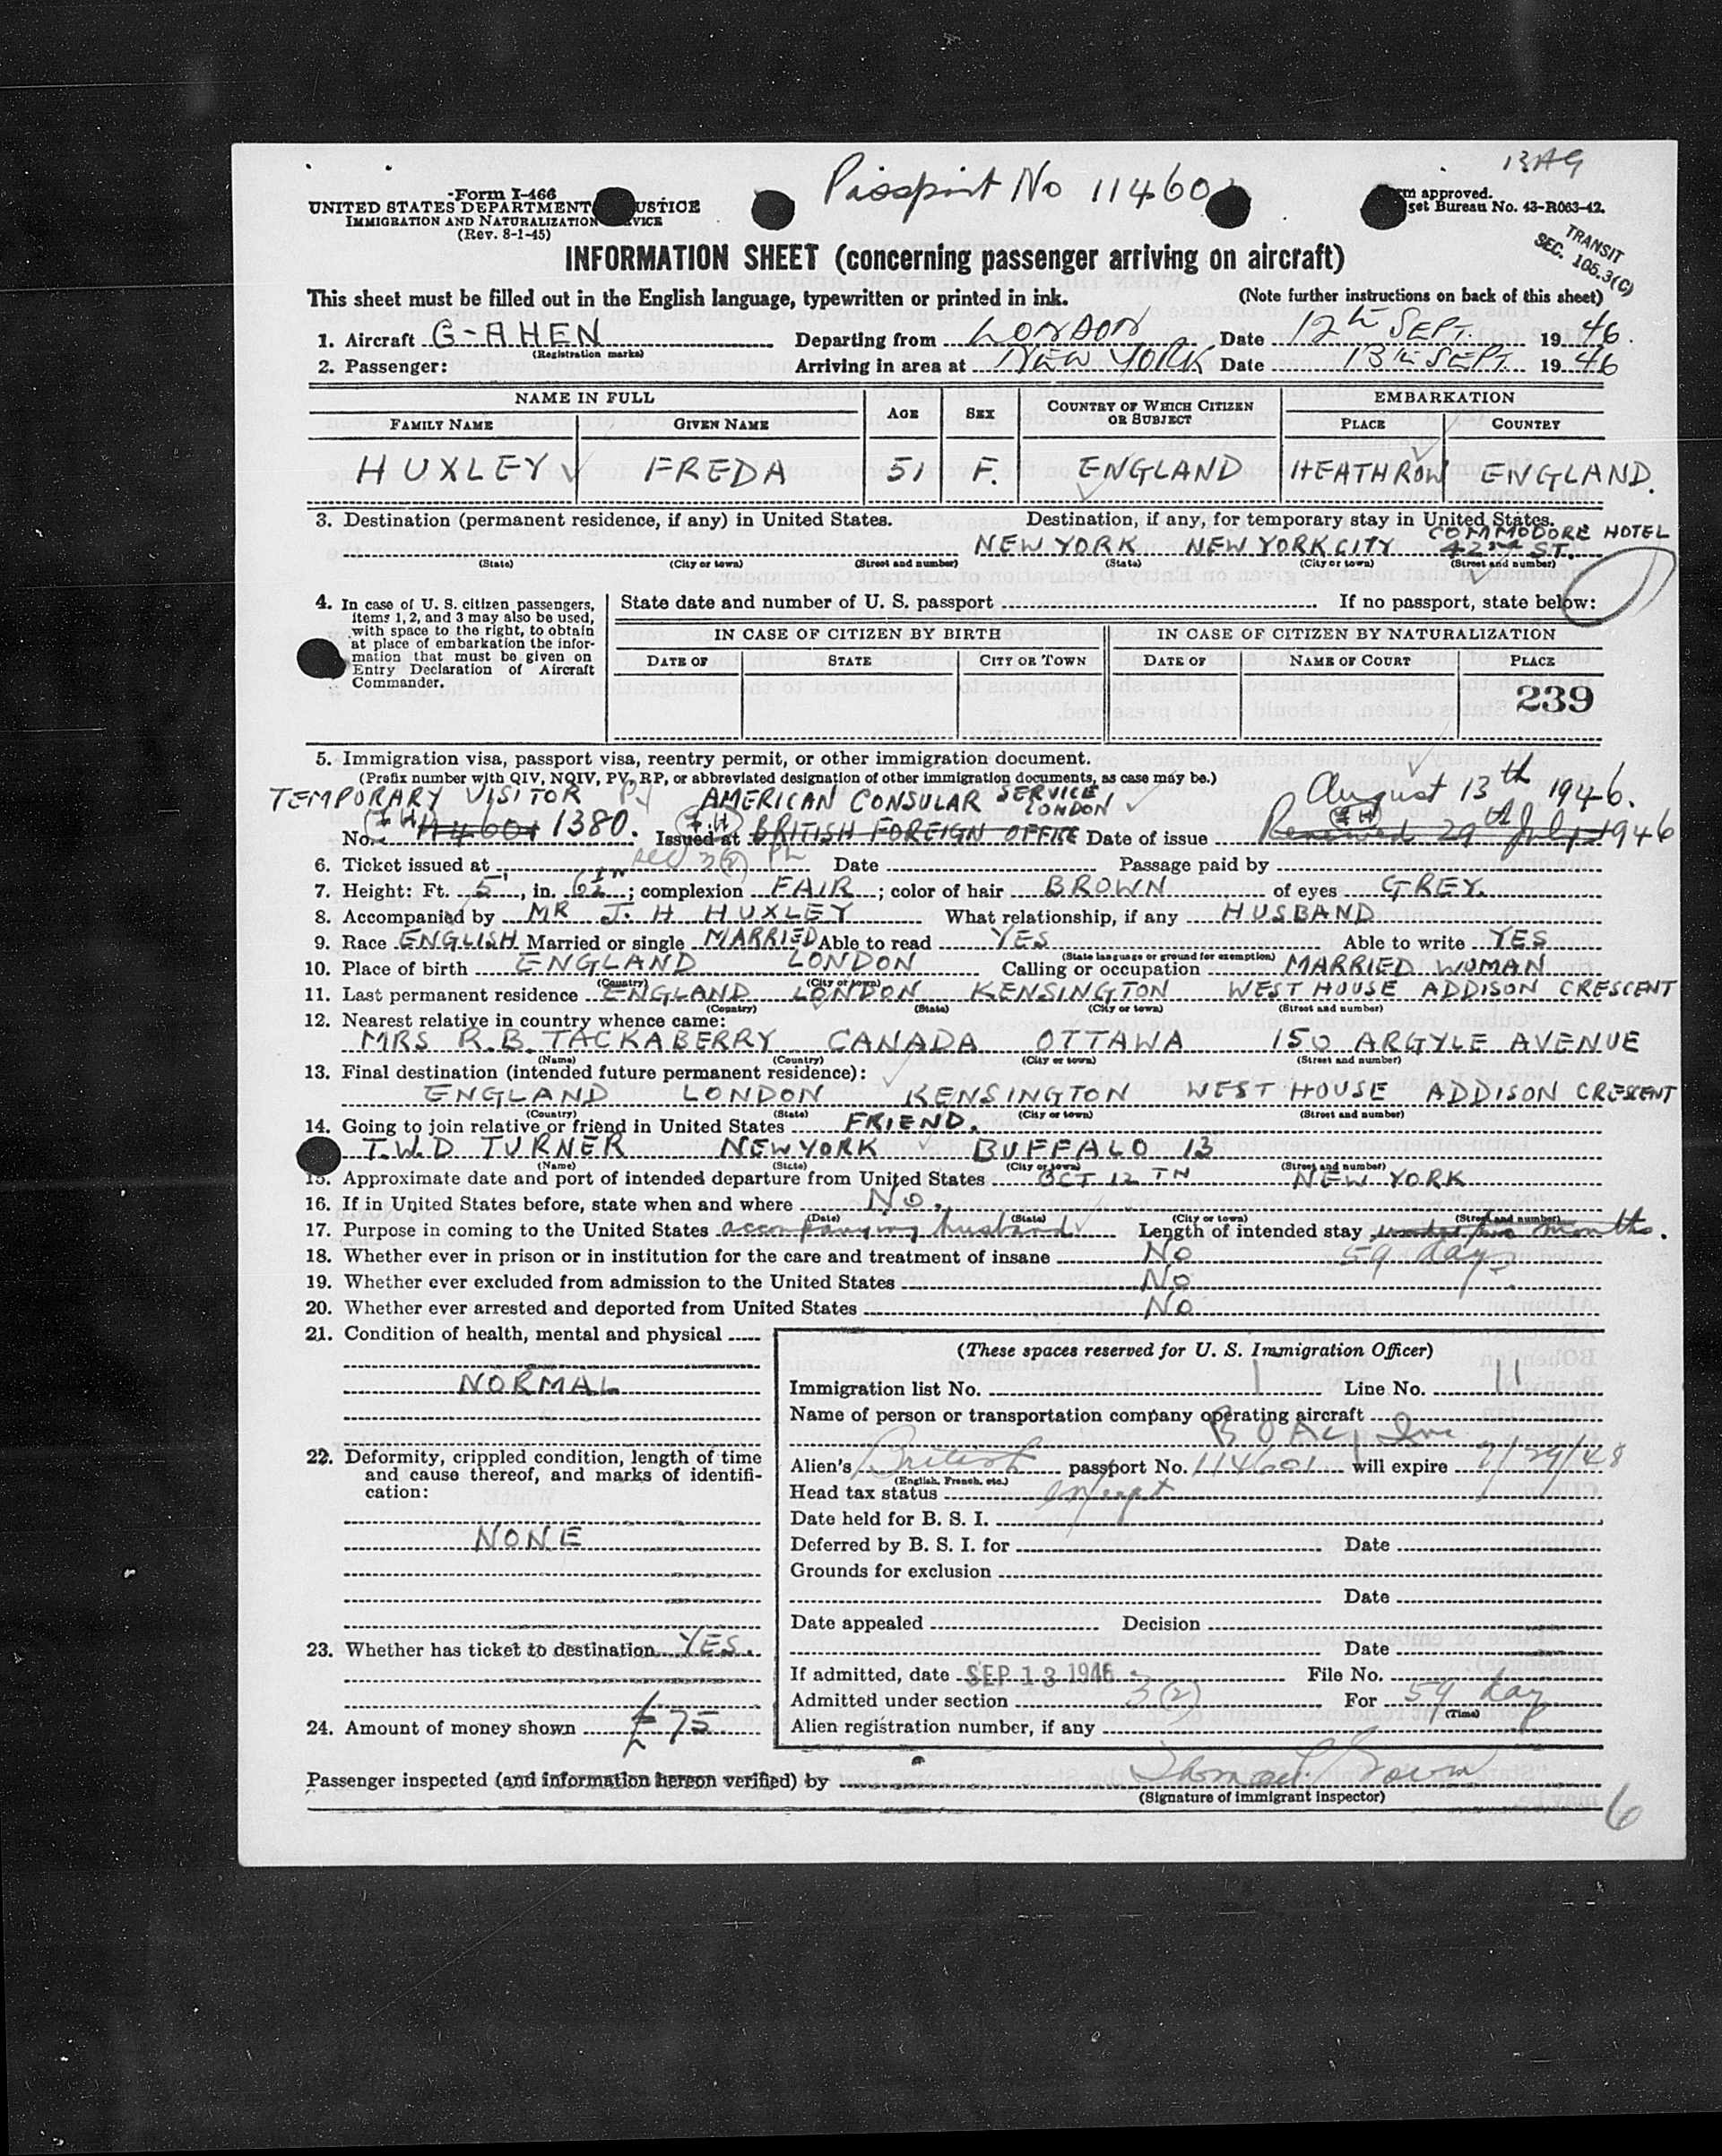 13AG
Passport No 11460
Form I-466
UNITED STATES DEPARTMENT JUSTICE
IMMIGRATION AND NATURALIZATION
(Rev. 8-1-45)
approved.
Bureau No. 43-R063-42.
TRANSIT
SEC. 105.3(C)
INFORMATION SHEET (concerning passenger arriving on aircraft)
This sheet must be filled out in the English language, typewritten or printed in ink. (Note further instructions on back of this sheet)
1. Aircraft G-AHEN Departing from LONDON Date 12th SEPT. 1946.
(Registration marks)
2. Passenger: Arriving in area at NEW YORK Date 13th SEPT. 1946
NAME IN FULL AGE SEX COUNTRY OF WHICH CITIZEN OR SUBJECT EMBARKATION
FAMILY NAME GIVEN NAME PLACE COUNTRY
HUXLEY FREDA 51 F. ENGLAND HEATHROW ENGLAND.
3. Destination (permanent residence, if any) in United States. Destination, if any, for temporary stay in United States.
COMMODORE HOTEL
NEW YORK NEW YORK CITY 42nd ST.
(State) (City or town) (Street and number) (State) (City or town) (Street and number)
4. In case of U. S. citizen passengers, items 1, 2, and 3 may also be used, with space to the right, to obtain at place of embarkation the information that must be given on Entry Declaration of Aircraft Commander.
State date and number of U. S. passport If no passport, state below:
IN CASE OF CITIZEN BY BIRTH IN CASE OF CITIZEN BY NATURALIZATION
DATE OF STATE CITY OR TOWN DATE OF NAME OF COURT PLACE
239
5. Immigration visa, passport visa, reentry permit, or other immigration document.
(Prefix number with QIV, NQIV, PV, RP, or abbreviated designation of other immigration documents, as case may be.)
TEMPORARY VISITOR AMERICAN CONSULAR SERVICE LONDON August 13th 1946.
No. 114601 1380. Issued at BRITISH FOREIGN OFFICE Date of issue Renewed 29th July 1946
6. Ticket issued at Date Passage paid by
7. Height: Ft. 5, in. 6½; complexion FAIR; color of hair BROWN of eyes GREY.
8. Accompanied by MR J. H HUXLEY What relationship, if any HUSBAND
9. Race ENGLISH Married or single MARRIED Able to read YES Able to write YES
(State language or ground for exemption)
10. Place of birth ENGLAND LONDON Calling or occupation MARRIED WOMAN
(Country) (City or town)
11. Last permanent residence ENGLAND LONDON KENSINGTON WEST HOUSE ADDISON CRESCENT
(Country) (State) (City or town) (Street and number)
12. Nearest relative in country whence came:
MRS R.B. TACKABERRY CANADA OTTAWA 150 ARGYLE AVENUE
(Name) (Country) (City or town) (Street and number)
13. Final destination (intended future permanent residence):
ENGLAND LONDON KENSINGTON WEST HOUSE ADDISON CRESCENT
(Country) (State) (City or town) (Street and number)
14. Going to join relative or friend in United States FRIEND.
T.W.D TURNER NEW YORK BUFFALO 13
(Name) (State) (City or town) (Street and number)
15. Approximate date and port of intended departure from United States OCT 12TH NEW YORK
16. If in United States before, state when and where No.
(Date) (State) (City or town) (Street and number)
17. Purpose in coming to the United States accompanying husband Length of intended stay under two months.
59 days
18. Whether ever in prison or in institution for the care and treatment of insane No
19. Whether ever excluded from admission to the United States No
20. Whether ever arrested and deported from United States No
21. Condition of health, mental and physical
NORMAL
22. Deformity, crippled condition, length of time and cause thereof, and marks of identification:
NONE
23. Whether has ticket to destination YES.
24. Amount of money shown £75
(These spaces reserved for U. S. Immigration Officer)
Immigration list No. 1 Line No. 11
Name of person or transportation company operating aircraft
BOAC, Inc
Alien's British passport No. 114601 will expire 7/29/48
(English, French, etc.)
Head tax status exempt
Date held for B. S. I.
Deferred by B. S. I. for Date
Grounds for exclusion
Date
Date appealed Decision
Date
If admitted, date SEP 13 1946 File No.
Admitted under section 3(2) For 59 day
(Time)
Alien registration number, if any
Passenger inspected (and information hereon verified) by
(Signature of immigrant inspector)
6